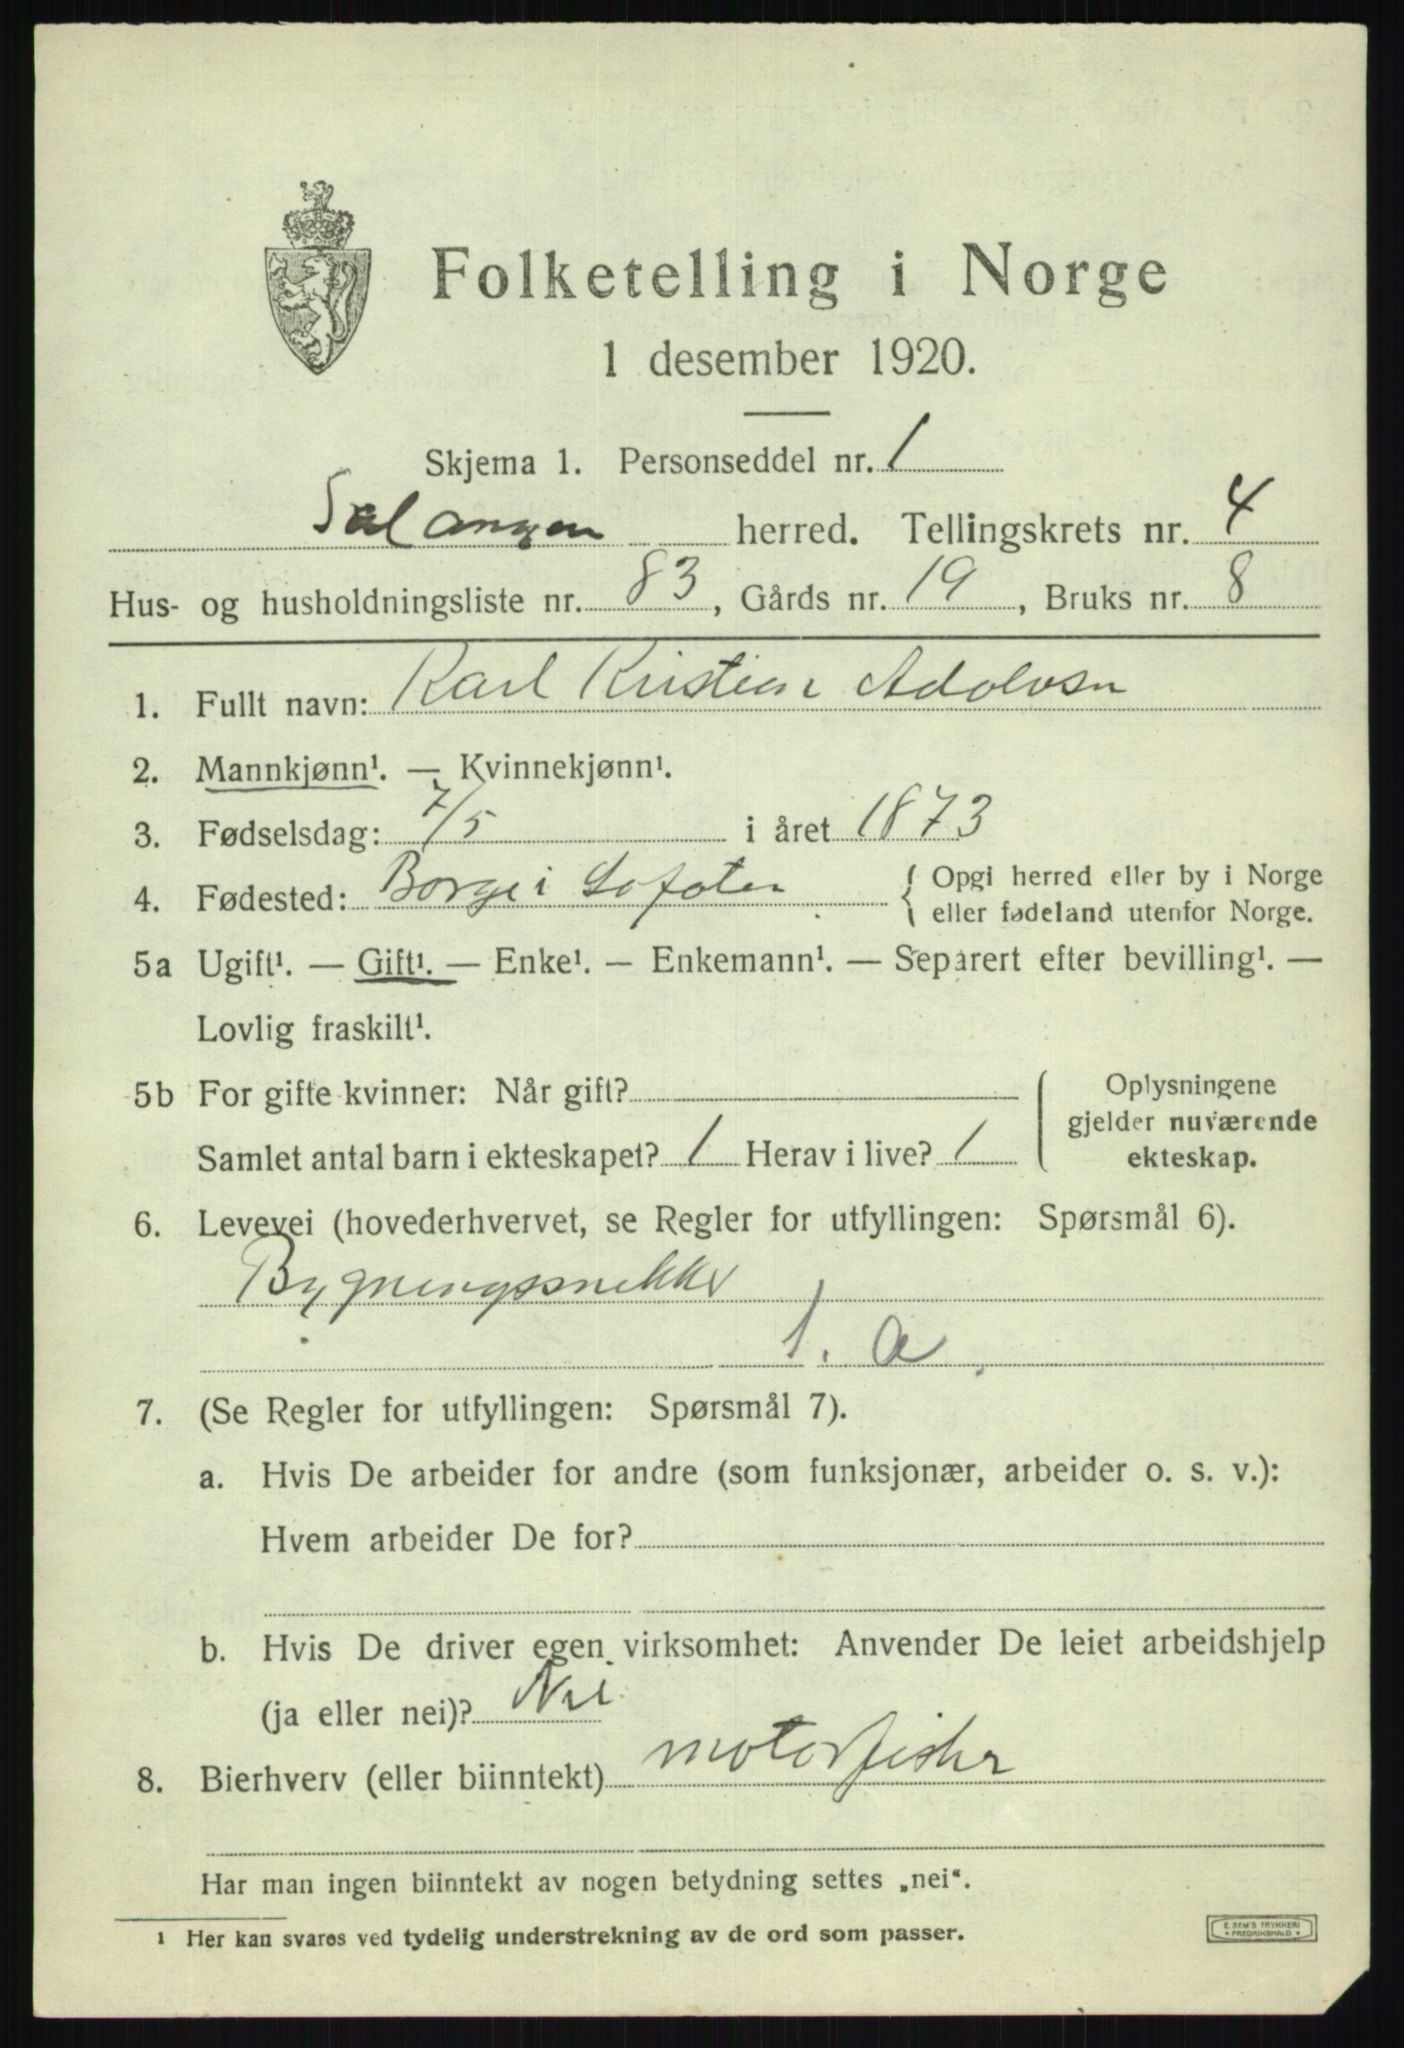 Folketelling i Norge
1 desember 1920.
Skjema 1. Personseddel nr. 1
Salangen herred. Tellingskrets nr. 4
Hus- og husholdningsliste nr. 83, Gårds nr. 19, Bruks nr. 8
1. Fullt navn: Karl Kristian Adolvsn
2. Mannkjønn¹. — Kvinnekjønn¹.
3. Fødselsdag: 7/5 i året 1873
4. Fødested: Borge i Lofoten { Opgi herred eller by i Norge
eller fødeland utenfor Norge.
5a Ugift¹. — Gift¹. — Enke¹. — Enkemann¹. — Separert efter bevilling¹. —
Lovlig fraskilt¹.
5b For gifte kvinner: Når gift?
Samlet antal barn i ekteskapet? 1 Herav i live? 1
Oplysningene
gjelder nuværende
ekteskap.
6. Levevei (hovederhvervet, se Regler for utfyllingen: Spørsmål 6).
Bygningssnekker
s. a.
7. (Se Regler for utfyllingen: Spørsmål 7).
a. Hvis De arbeider for andre (som funksjonær, arbeider o. s. v.):
Hvem arbeider De for?
b. Hvis De driver egen virksomhet: Anvender De leiet arbeidshjelp
(ja eller nei)? Nei
8. Bierhverv (eller biinntekt) motorfisker
Har man ingen biinntekt av nogen betydning settes „nei“.
¹ Her kan svares ved tydelig understrekning av de ord som passer.
E. SEM'S TRYKKERI
* FREDRIKSHALD *